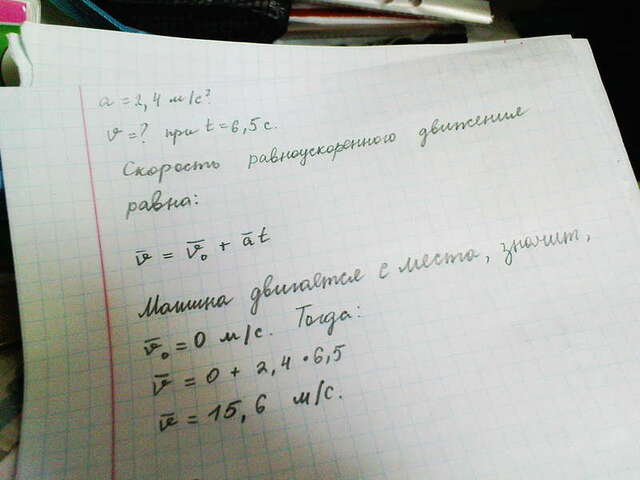 a = 2,4 м/с²
v = ? при t = 6,5 с.
Скорость равноускоренного движения
равна:
v̅ = v̅₀ + a̅t
Машина двигается с места, значит,
v̅₀ = 0 м/с. Тогда:
v̅ = 0 + 2,4 • 6,5
v̅ = 15,6 м/с.